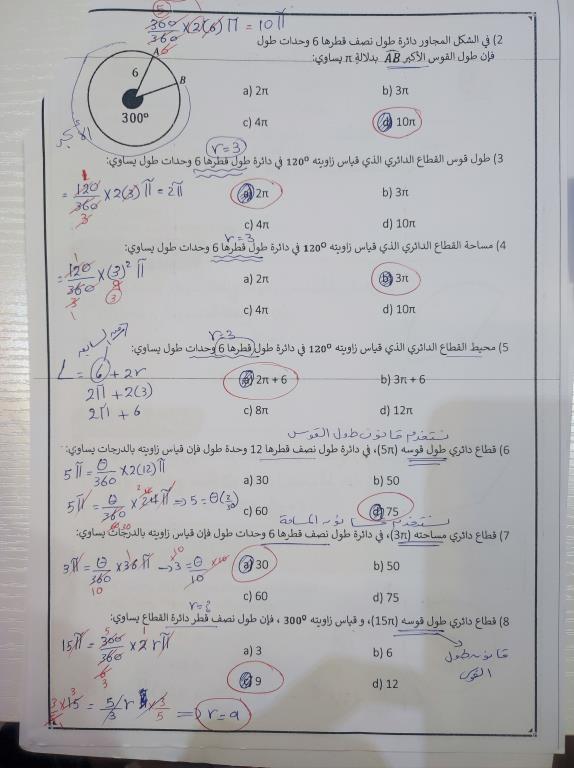 360/360 × 2(6) π = 10 π
5
6
2) في الشكل المجاور دائرة طول نصف قطرها 6 وحدات طول
فإن طول القوس الأكبر AB بدلالة π يساوي:
A
6
B
300º
الأكبر
a) 2π b) 3π
c) 4π d) 10π
r = 3
3) طول قوس القطاع الدائري الذي قياس زاويته 120º في دائرة طول قطرها 6 وحدات طول يساوي:
= 120/360 × 2(3) π = 2π
1
3
a) 2π b) 3π
c) 4π d) 10π
r = 3
4) مساحة القطاع الدائري الذي قياس زاويته 120º في دائرة طول قطرها 6 وحدات طول يساوي:
= 120/360 × (3)² π
1
3
9
3
1
a) 2π b) 3π
c) 4π d) 10π
r = 3
5) محيط القطاع الدائري الذي قياس زاويته 120º في دائرة طول قطرها 6 وحدات طول يساوي:
L = 6 + 2r
2π + 2(3)
2π + 6
a) 2π + 6 b) 3π + 6
c) 8π d) 12π
نستخدم قانون طول القوس
6) قطاع دائري طول قوسه (5π)، في دائرة طول نصف قطرها 12 وحدة طول فإن قياس زاويته بالدرجات يساوي:
5π = θ/360 × 2(12) π
a) 30 b) 50
5π = θ/360 × 24π ⇒ 5 = θ(2/30)
c) 60 d) 75
نستخدم قانون المساحة
7) قطاع دائري مساحته (3π)، في دائرة طول نصف قطرها 6 وحدات طول فإن قياس زاويته بالدرجات يساوي:
3π = θ/360 × 36π → 3 = θ/10
×10
×10
1
10
a) 30 b) 50
c) 60 d) 75
r = ?
8) قطاع دائري طول قوسه (15π)، و قياس زاويته 300º ، فإن طول نصف قطر دائرة القطاع يساوي:
15π = 300/360 × 2 r π
5
1
6
3
a) 3 b) 6
قانون طول
القوس
c) 9 d) 12
3/5 × 15 = 5/3 r × 3/5 ⇒ r = 9